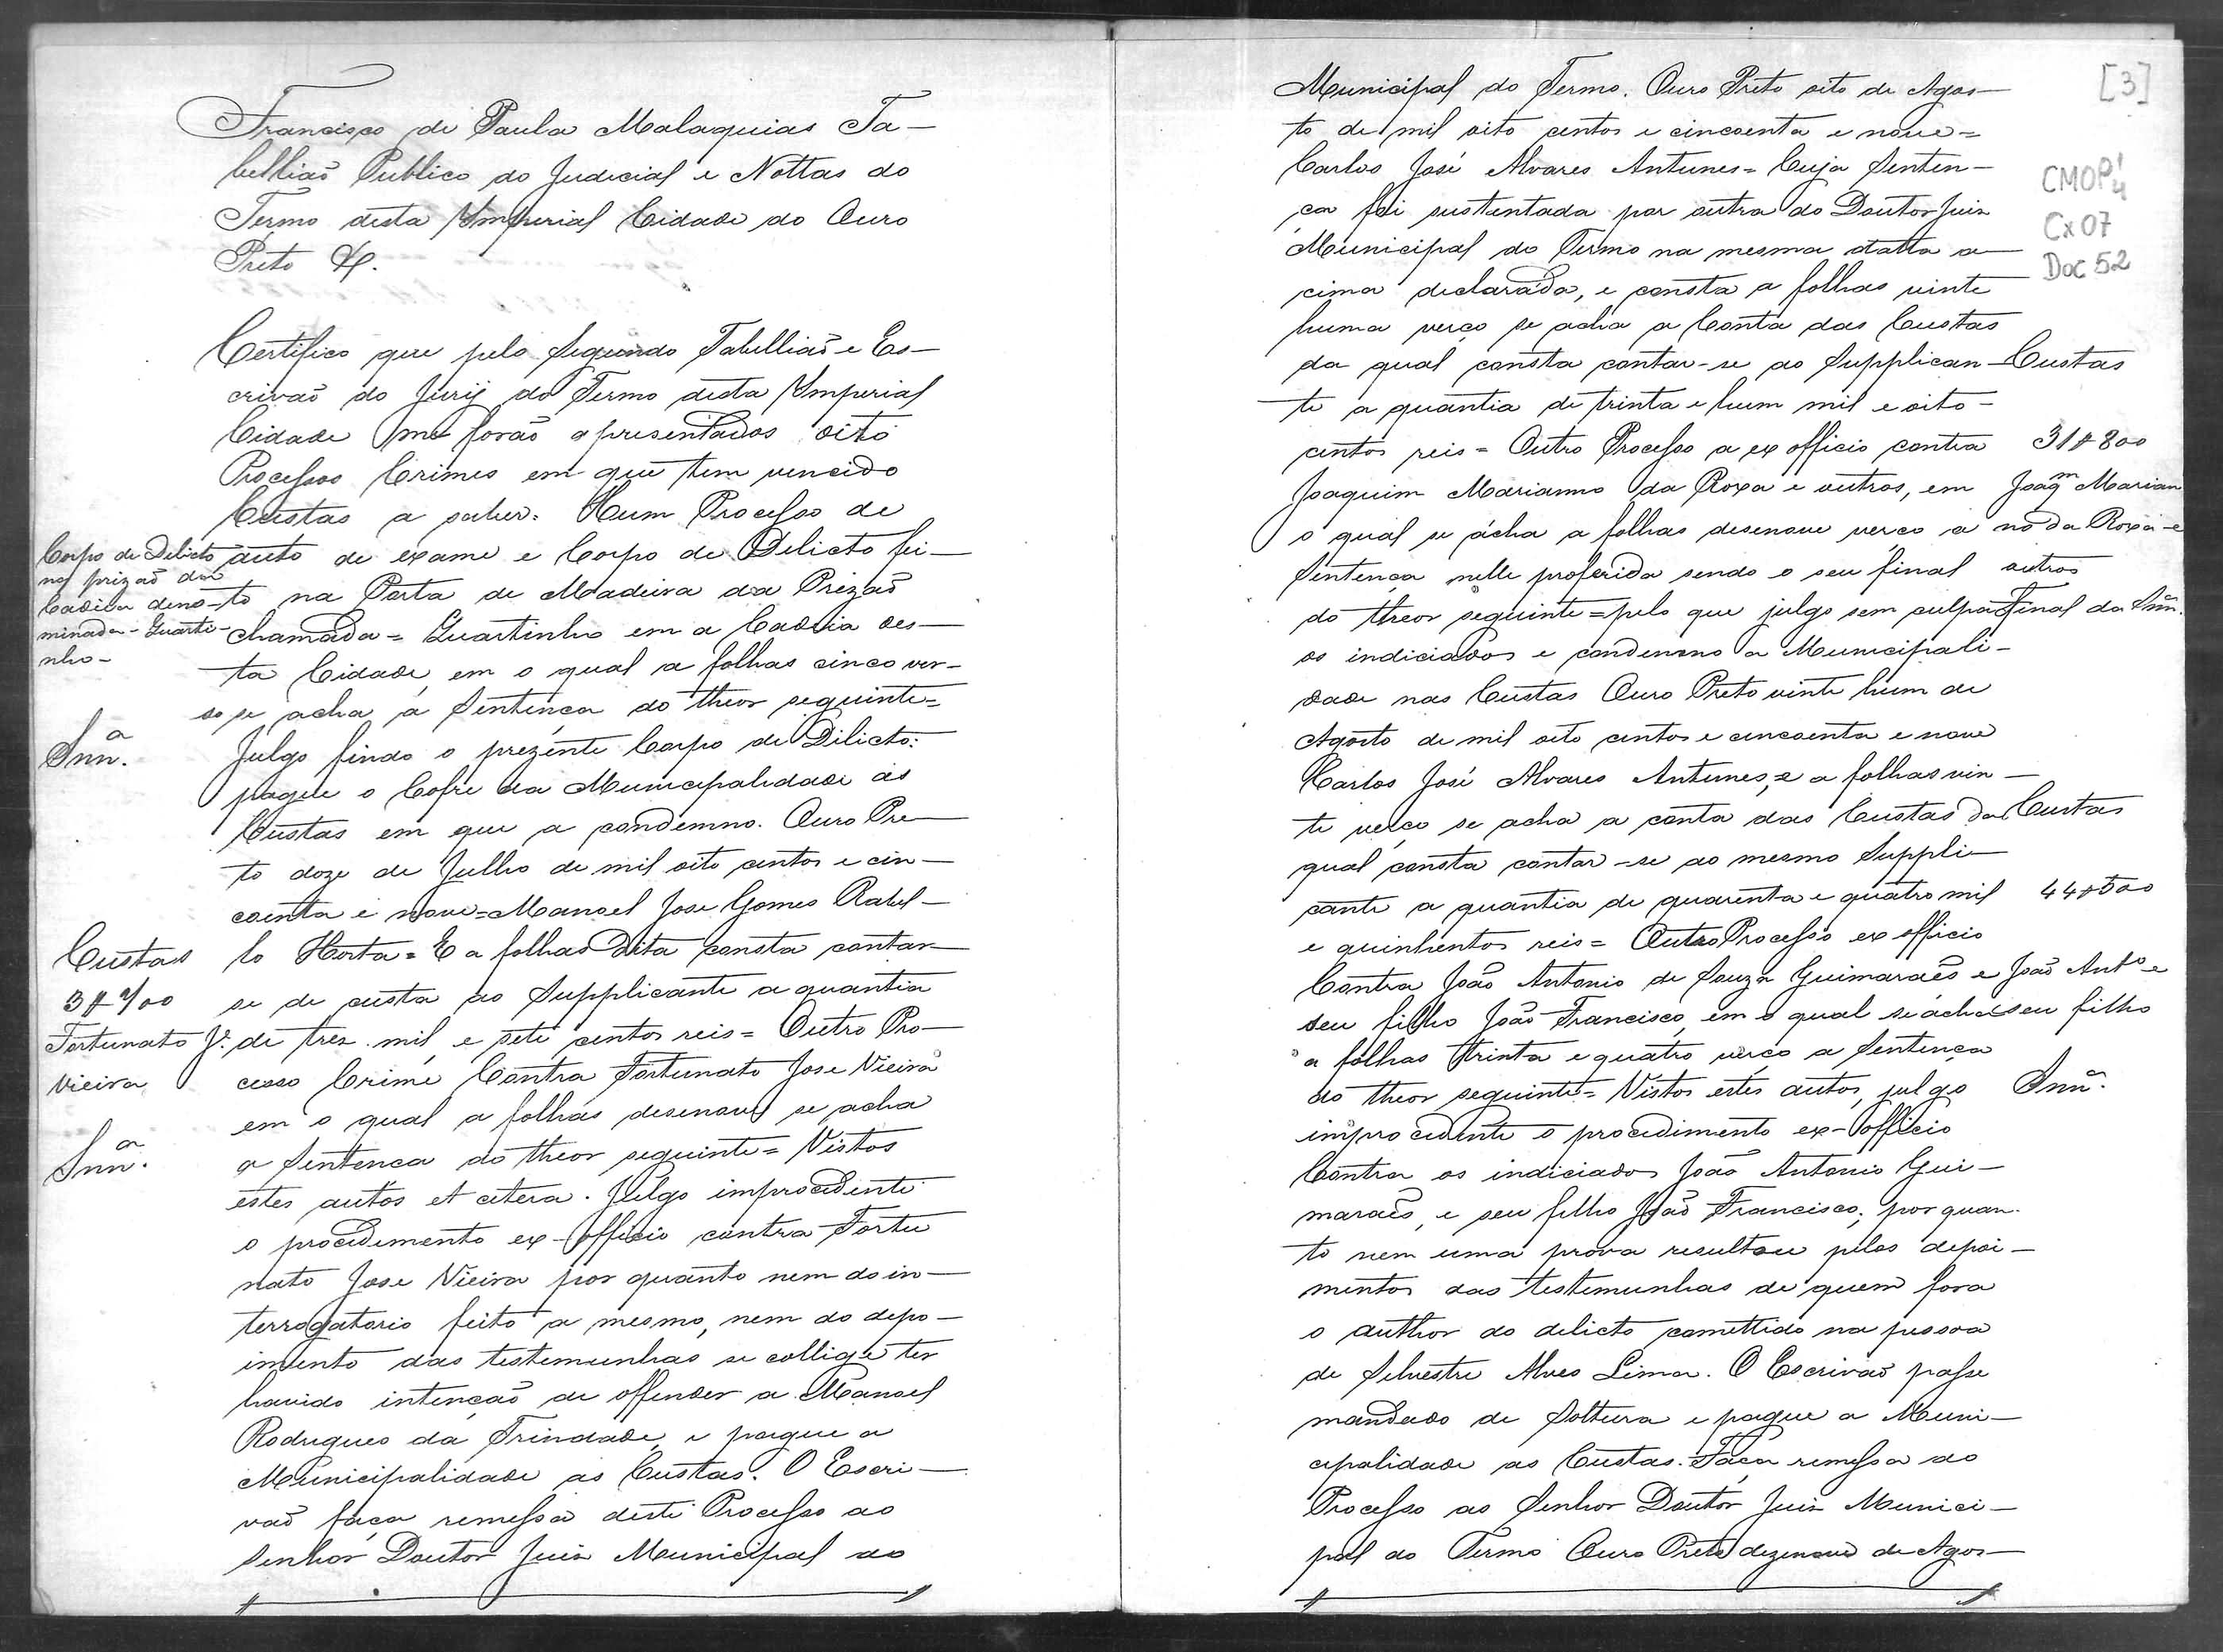 Francisco de Paula Malaquias Ta-
bellião Publico do Judicial e Nottas do
Termo desta Imperial Cidade do Ouro
Preto &.
Certifico que pelo Segundo Tabellião e Es-
crivão do Jury do Termo desta Imperial
Cidade me forão apresentados oito
Processos Crimes em que tem vencido
Custas a saber: Hum Processo de
Corpo de Delicto
na prizaõ da
Cadeia deno-
minada - Quarti-
nho -
auto de exame e Corpo de Delicto fei-
to na Porta de Madeira da Prizaõ
chamada = Quartinho em a Cadeia des-
ta Cidade, em o qual a folhas cinco ver-
so se acha a Sentença do theor seguinte =
Snn.ª
Julgo findo o prezente Corpo de Dilicto:
pague o Cofre da Municipalidade as
Custas em que a condemno. Ouro Pre-
to doze de Julho de mil oito centos e cin-
coenta e nove = Manoel Jose Gomes Rabel-
Custas
3$700
lo Horta = E a folhas dita consta contar-
se de custa ao Supplicante a quantia
Fortunato J.e
Vieira
de trez mil e sete centos reis = Outro Pro-
cesso Crime Contra Fortunato Jose Vieira
em o qual a folhas desenove se acha
Snn.ª
a Sentenca do theor seguinte = Vistos
estes autos et cetera. Julgo improcedente
o procedimento ex-officio contra Fortu
nato Jose Vieira por quanto nem do in-
terrogatorio feito a mesmo, nem do depo-
imento das testemunhas se collige ter
havido intenção de offender a Manoel
Rodrigues da Trindade, e pague a
Municipalidade as Custas. O Escri-
vaõ faça remessa deste Processo ao
Senhor Doutor Juiz Municipal do
[3]
CMOP
Cx 07
Doc 52
Municipal do Termo. Ouro Preto oito de Agos-
to de mil oito centos e cincoenta e nove =
Carlos José Alvares Antunes = Cuja Senten-
ça foi sustentada por outra do Doutor Juiz
Municipal do Termo na mesma datta a-
cima declarada, e consta a folhas vinte
huma verço se acha a Conta das Custas
da qual consta contar-se ao Supplican-
Custas
te a quantia de trinta e hum mil e oito-
centos reis = Outro Processo a ex officio contra
31$800
Joaquim Marianno da Roxa e outros, em
Joaq.m Marian
no da Roxa e
outros
o qual se ácha a folhas desenove verço a
Sentença nelle proferida sendo o seu final
do theor seguinte = pelo que julgo sem culpa
Final da Snn.ª
os indiciados e condemno a Municipali-
dade nas Custas Ouro Preto vinte hum de
Agosto de mil oito centos e cincoenta e nove
Carlos José Alvares Antunes, = e a folhas vin-
te verço se acha a conta das Custas da
Custas
qual consta contar-se ao mesmo Suppli-
cante a quantia de quarenta e quatro mil
44$500
e quinhentos reis = Outro Processo ex officio
Contra João Antonio de Souza Guimaraẽs e
João Ant.º e
seu filho
seu filho João Francisco, em o qual se ácha
a folhas trinta e quatro verço a Sentença
do theor seguinte = Vistos estes autos, julgo
Snn.ª
improcedente o procedimento ex-officio
Contra os indiciados João Antonio Gui-
maraẽs, e seu filho João Francisco; por quan-
to nem uma prova resultou pelos depoi-
mentos das testemunhas de quem fora
o author do delicto comettido na pessoa
de Silvestre Alves Lima. O Escrivaõ passe
mandado de Soltura e pague a Muni-
cipalidade as Custas. Faça remessa do
Processo ao Senhor Doutor Juiz Munici-
pal do Termo Ouro Preto dezenove de Agos-